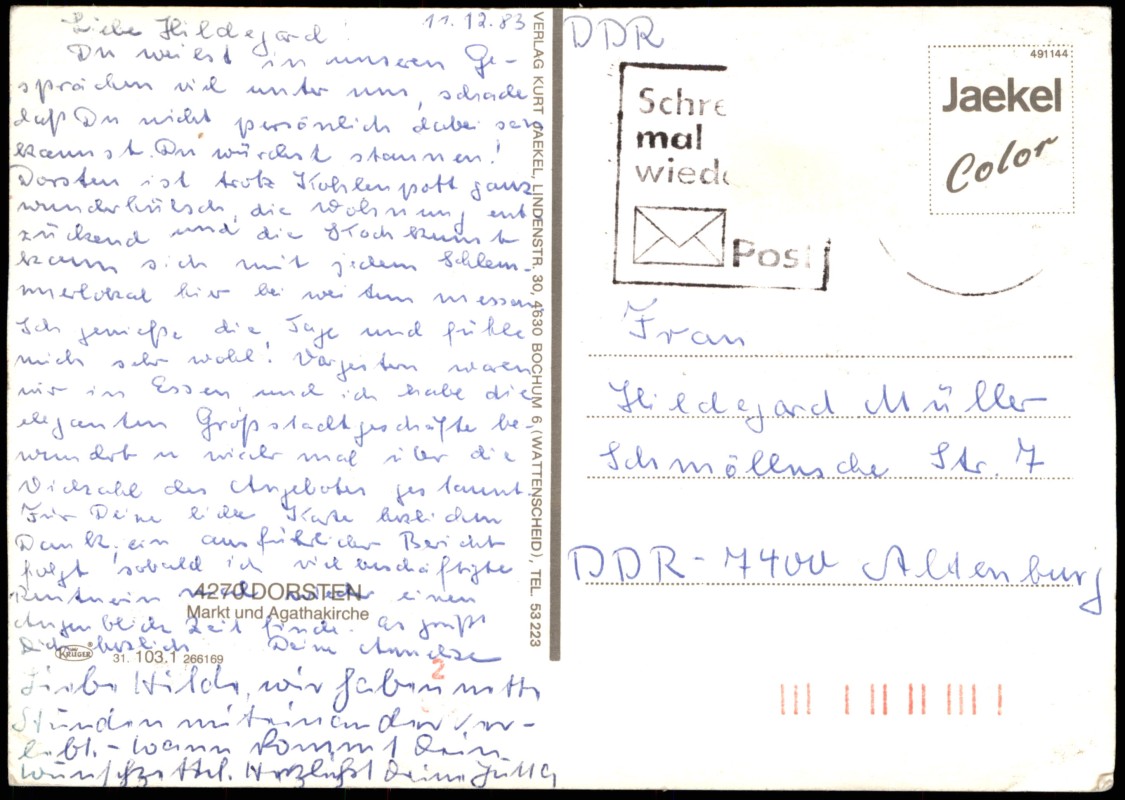 11.12.83
Liebe Hildegard!
Du weilst in unseren Ge-
sprächen viel unter uns, schade
daß Du nicht persönlich dabei sein
kannst. Du würdest staunen!
Dorsten ist trotz Kohlenpott ganz
wunderhübsch, die Wohnung ent-
zückend und die Kochkunst
kann sich mit jedem Schlem-
merlokal hier bei weitem messen.
Ich genieße die Tage und fühle
mich sehr wohl! Vorgestern waren
wir in Essen und ich habe die
eleganten Großstadtgeschäfte be-
wundert u wieder mal über die
Vielzahl des Angebotes gestaunt.
Für Deine liebe Karte herzlichen
Dank, ein ausführlicher Bericht
folgt sobald ich vielbeschäftigte
Rentnerin mal wieder einen
Augenblick Zeit finde. Es grüßt
Dich herzlich Deine Annelise
4270 DORSTEN
Markt und Agathakirche
KRÜGER
31. 103.1 266169
2
Liebe Hilde, wir haben nette
Stunden miteinander ver-
lebt. - Wann kommt Dein
Wunschzettel. Herzlichst Deine Jutta
VERLAG KURT JAEKEL, LINDENSTR. 30, 4630 BOCHUM 6 (WATTENSCHEID), TEL. 53 223
DDR
Schre
mal
wiede
Post
491144
Jaekel
Color
Frau
Hildegard Müller
Schmöllnsche Str. 7
DDR-7400 Altenburg